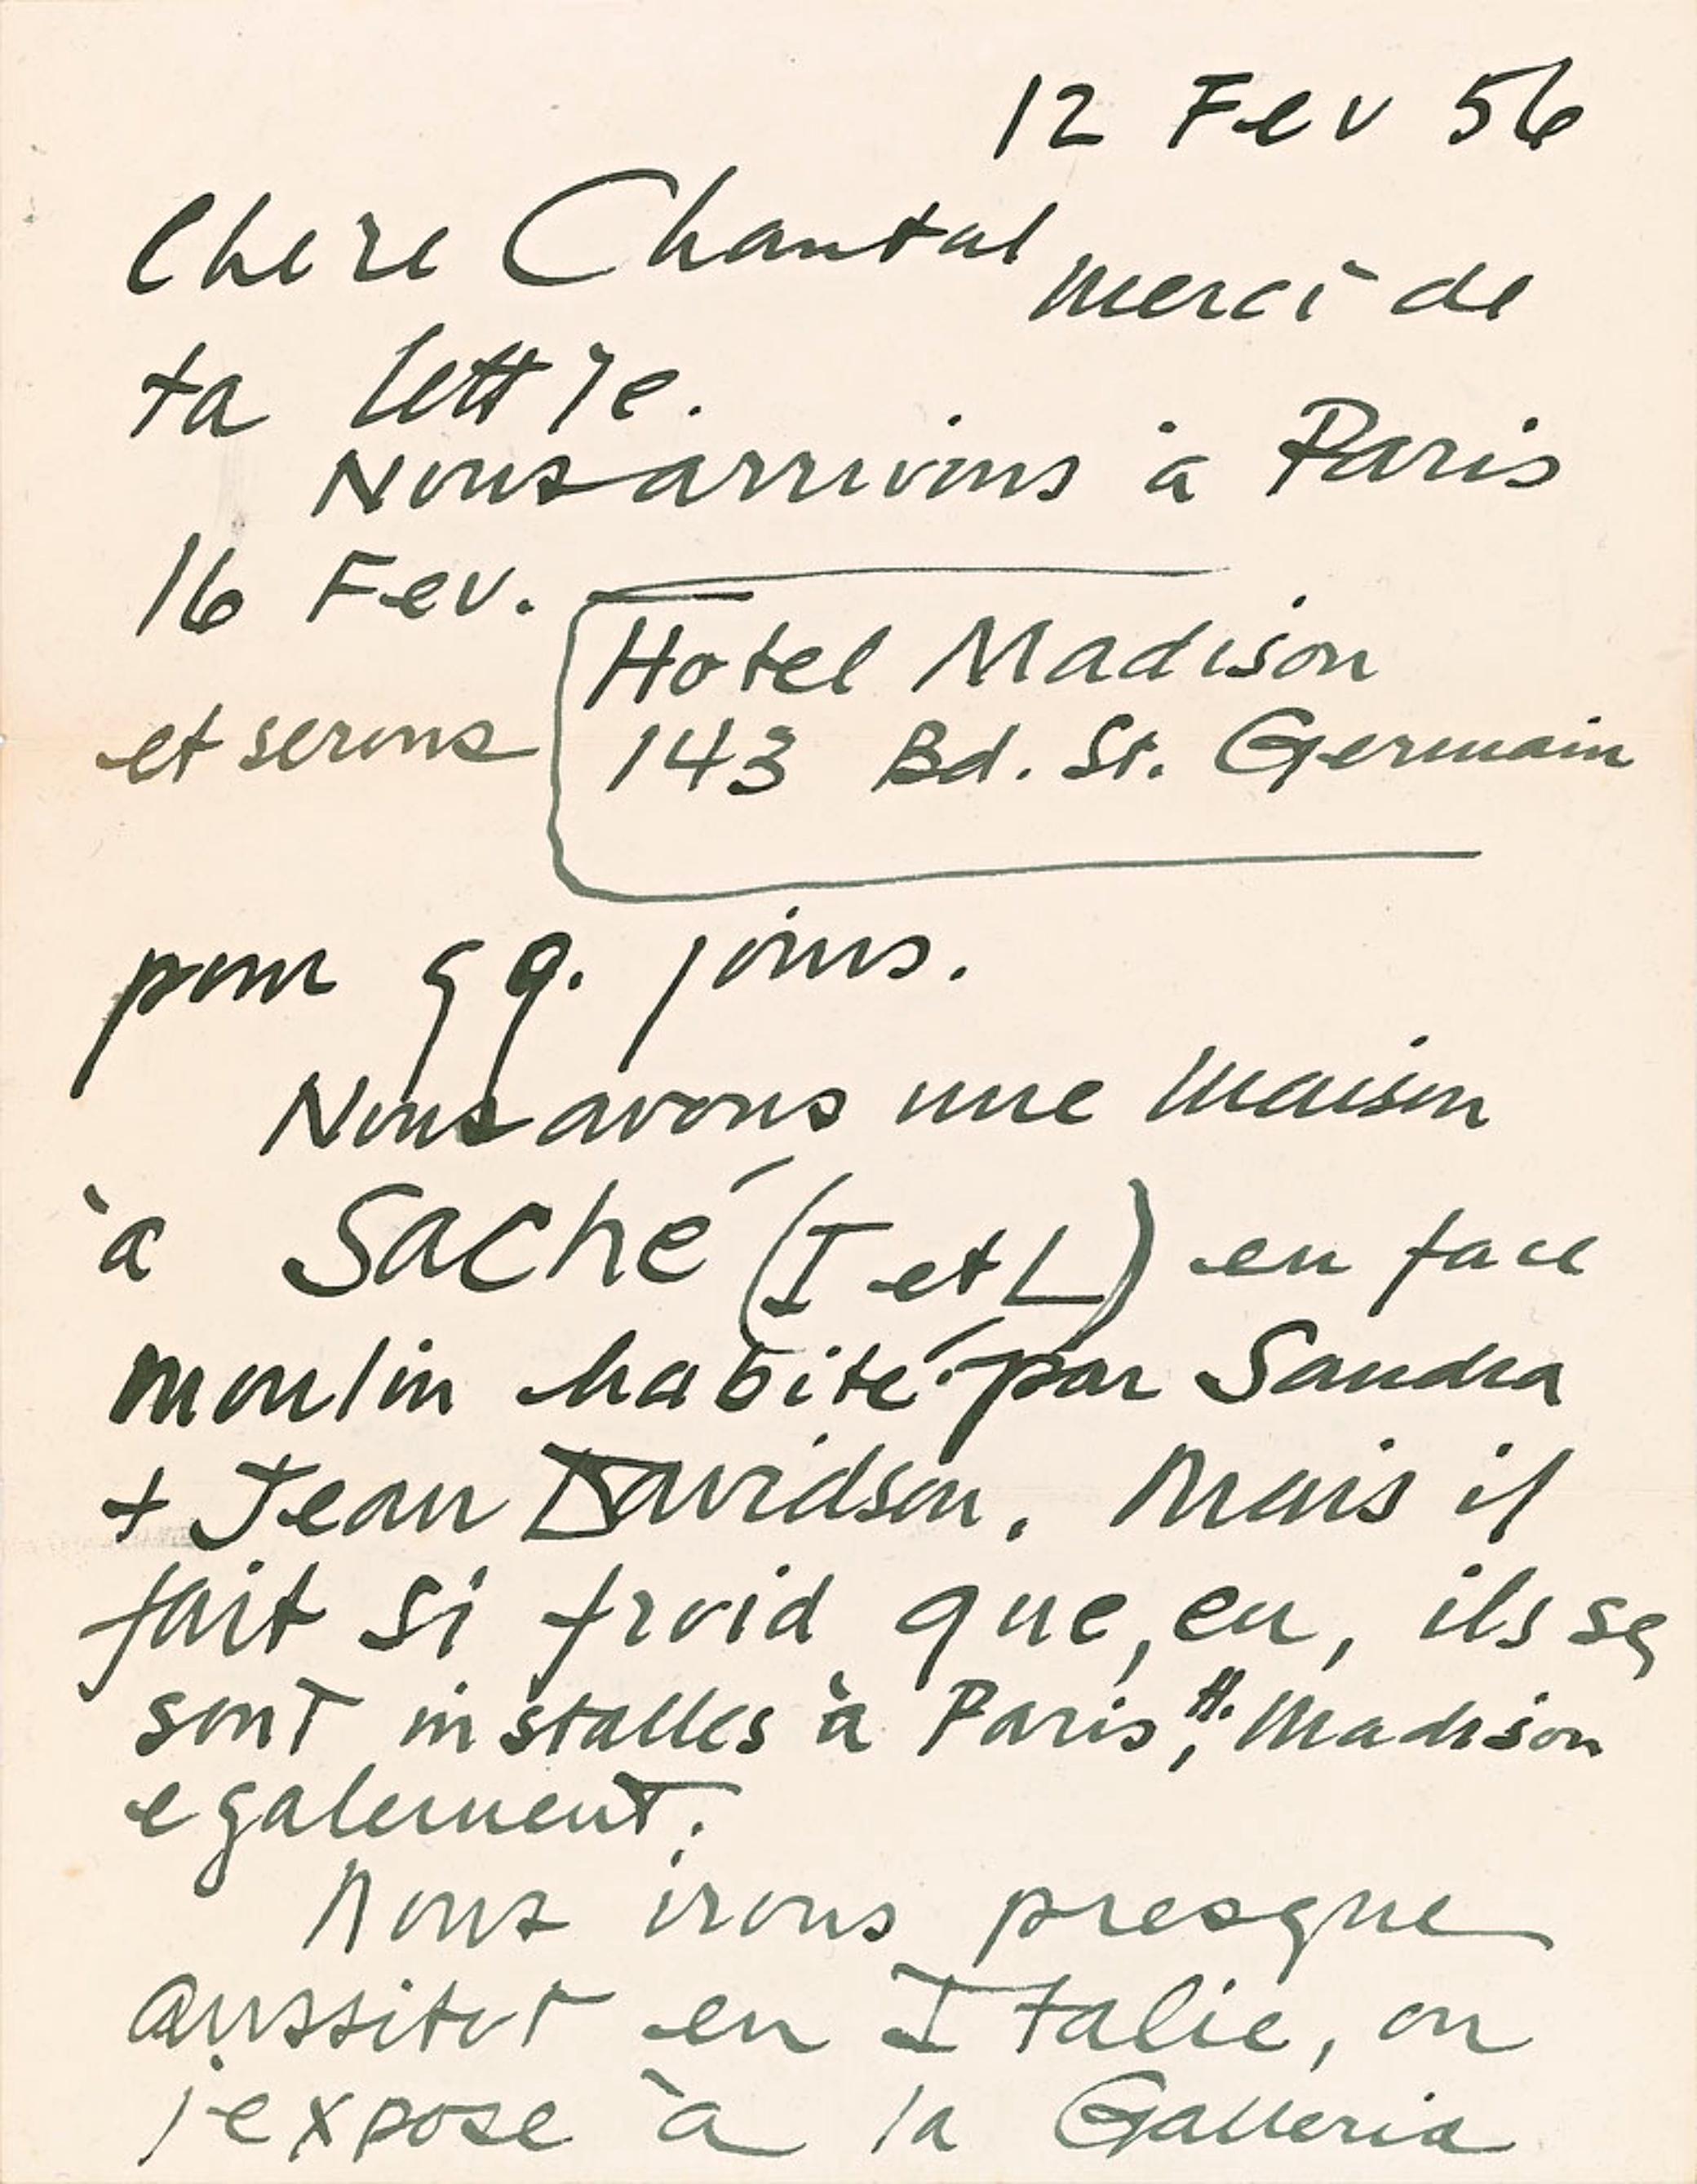 12 Fev 56
Chere Chantal merci de
ta lettre.
Nous arrivons à Paris
16 Fev.
Hotel Madison
et serons 143 Bd. St. Germain
pour qq. jours.
Nous avons une maison
à Saché (I et L) en face
moulin habité par Sandra
+ Jean Davidson. Mais il
fait si froid que, eu, ils se
sont installes à Paris, H. Madison
egalement.
Nous irons presque
aussitot en Italie, ou
j'expose à la Galleria